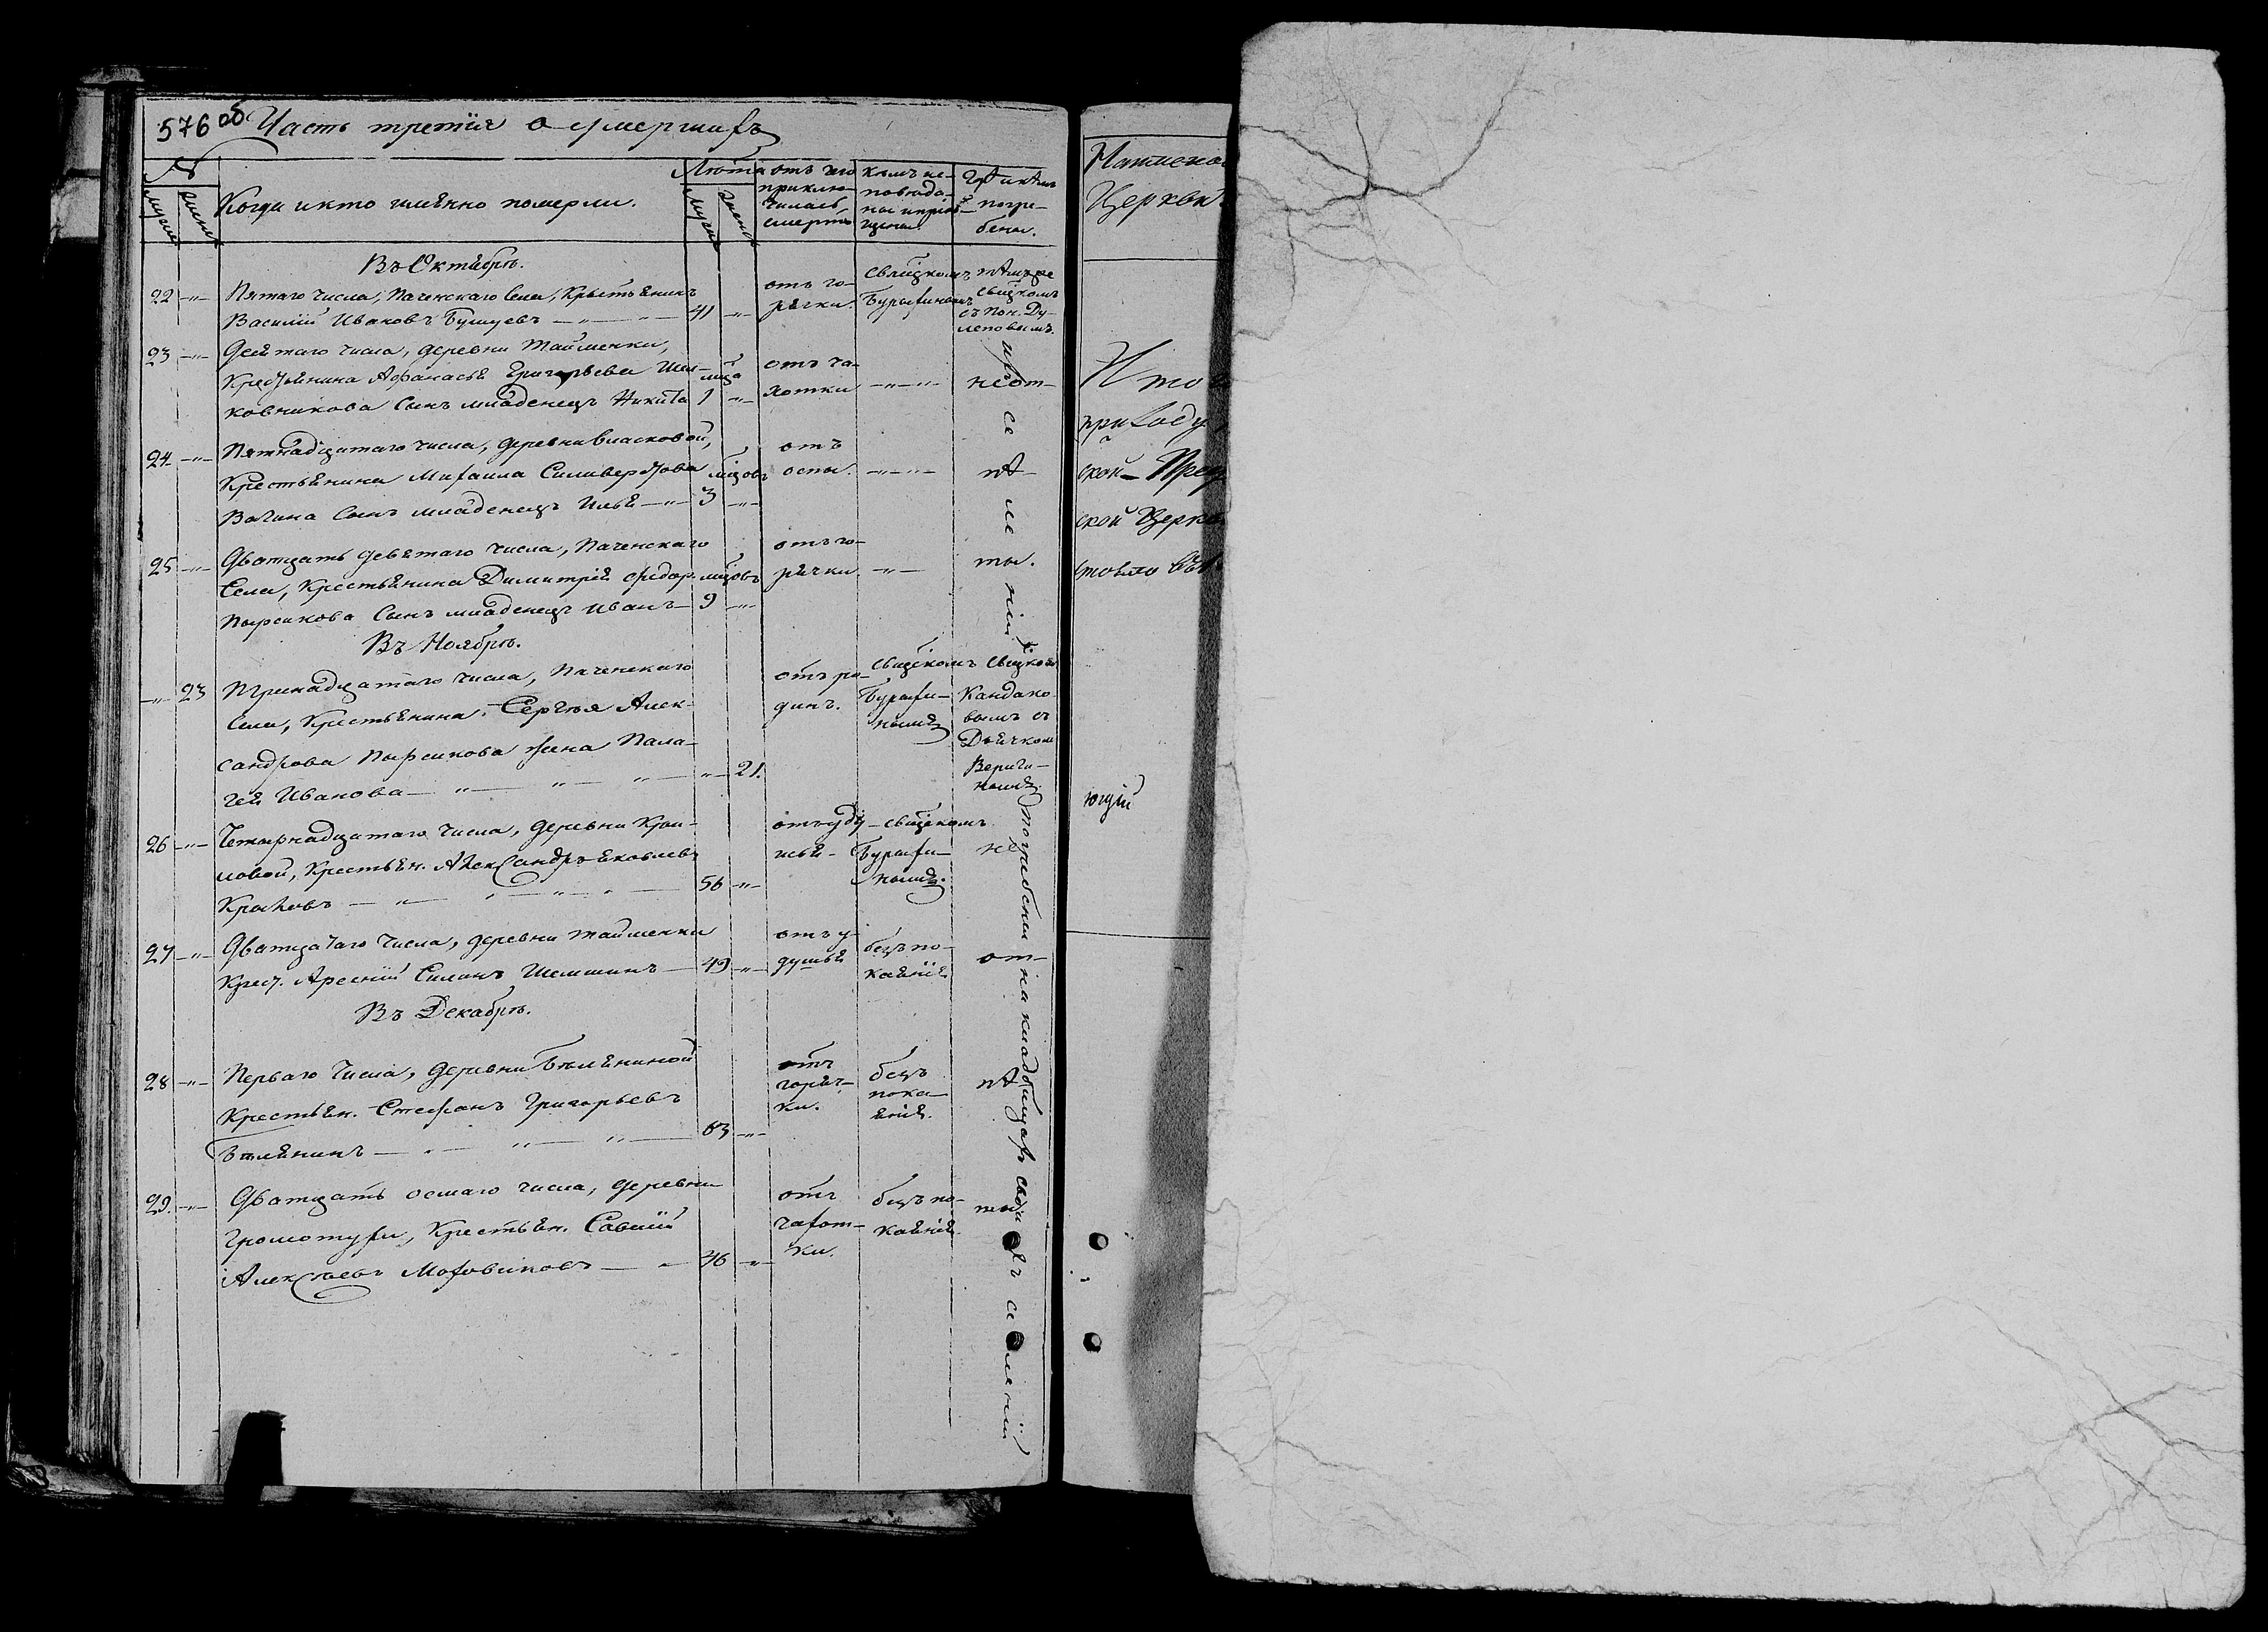 576 об.
Часть третія о умершихъ
№
мужеск
женск
Когда и кто имѣнно померли.
Лѣта
мужеск
женск
отъ чего
приклю-
чилась
смерть
Кѣмъ ис-
повѣда-
ны и пріоб-
щены.
Гдѣ и кѣмъ
погре-
бены.
Въ Октябрѣ.
22 —"— Пятаго числа, Паченскаго Села, Крестьянинъ
Василій Ивановъ Бушуевъ —"— —"— 41 —"—
отъ го-
рячки.
Священкомъ
Бурыхинымъ
тѣмъ же
Священкомъ
съ Пон. Ду-
леповымъ.
23 —"— Девятаго числа, деревни Тайменки,
Крестьянина Афанасья Григорьева Шел-
ковникова Сынъ младенецъ Никита мца 1 —"—
отъ ча-
хотки
—"—"—
не от-
24 —"— Пятнадцатаго числа, деревни Власковой,
Крестьянина Михаила Силиверстова
Вагина Сынъ младенецъ Илья —"— мцовъ 3 —"—
отъ
оспы.
—"—"—
пѣ-
25 —"— Дватцать девятаго числа, Паченскаго
Села, Крестьянина Димитрія Федор.
Пырсикова Сынъ младенецъ Иванъ — мцовъ 9 —"—
отъ го-
рячки
—"—
ты.
Въ Ноябрѣ.
—"— 23 Тринадцатаго числа, Паченскаго
Села, Крестьянина Сергѣя Алек-
сандрова Пырсикова жена Пала-
гея Иванова —"— —"— —"— 21.
отъ ро-
динъ.
Священкомъ
Бурыхи-
нымъ
Священкомъ
Кандако-
вымъ съ
Дьячкомъ
Вереги-
нымъ.
26 —"— Четырнадцатаго числа, деревни Кра-
ловой, Крестьян. Александръ Яковлевъ
—"— —"— 56 —"—
отъ уду-
шья
Священкомъ
Бурыхи-
нымъ.
не
27 —"— Дватцатаго числа, деревни Тайменки
Крест. Арсеній Силинъ Шемшинъ — 49 —"—
отъ у-
душья
безъ по-
каянія
от-
Въ Декабрѣ.
28 —"— Перваго числа, деревни Бѣляниной
Крестьян. Стефанъ Григорьевъ
Бѣлянинъ —"— —"— 63 —"—
отъ
горяч-
ки.
безъ
пока-
янія.
пѣ
29. —"— Дватцать осмаго числа, деревни
Громотухи, Крестьян. Савелій
Алексѣевъ Моховиковъ —"— 46 —"—
отъ
чахот-
ки.
безъ по-
каянія
ты
погребены на кладбищахъ своихъ селеній
Наимено
Церкви
Итог
приходу
ской Пред
ской Церкв
ющій